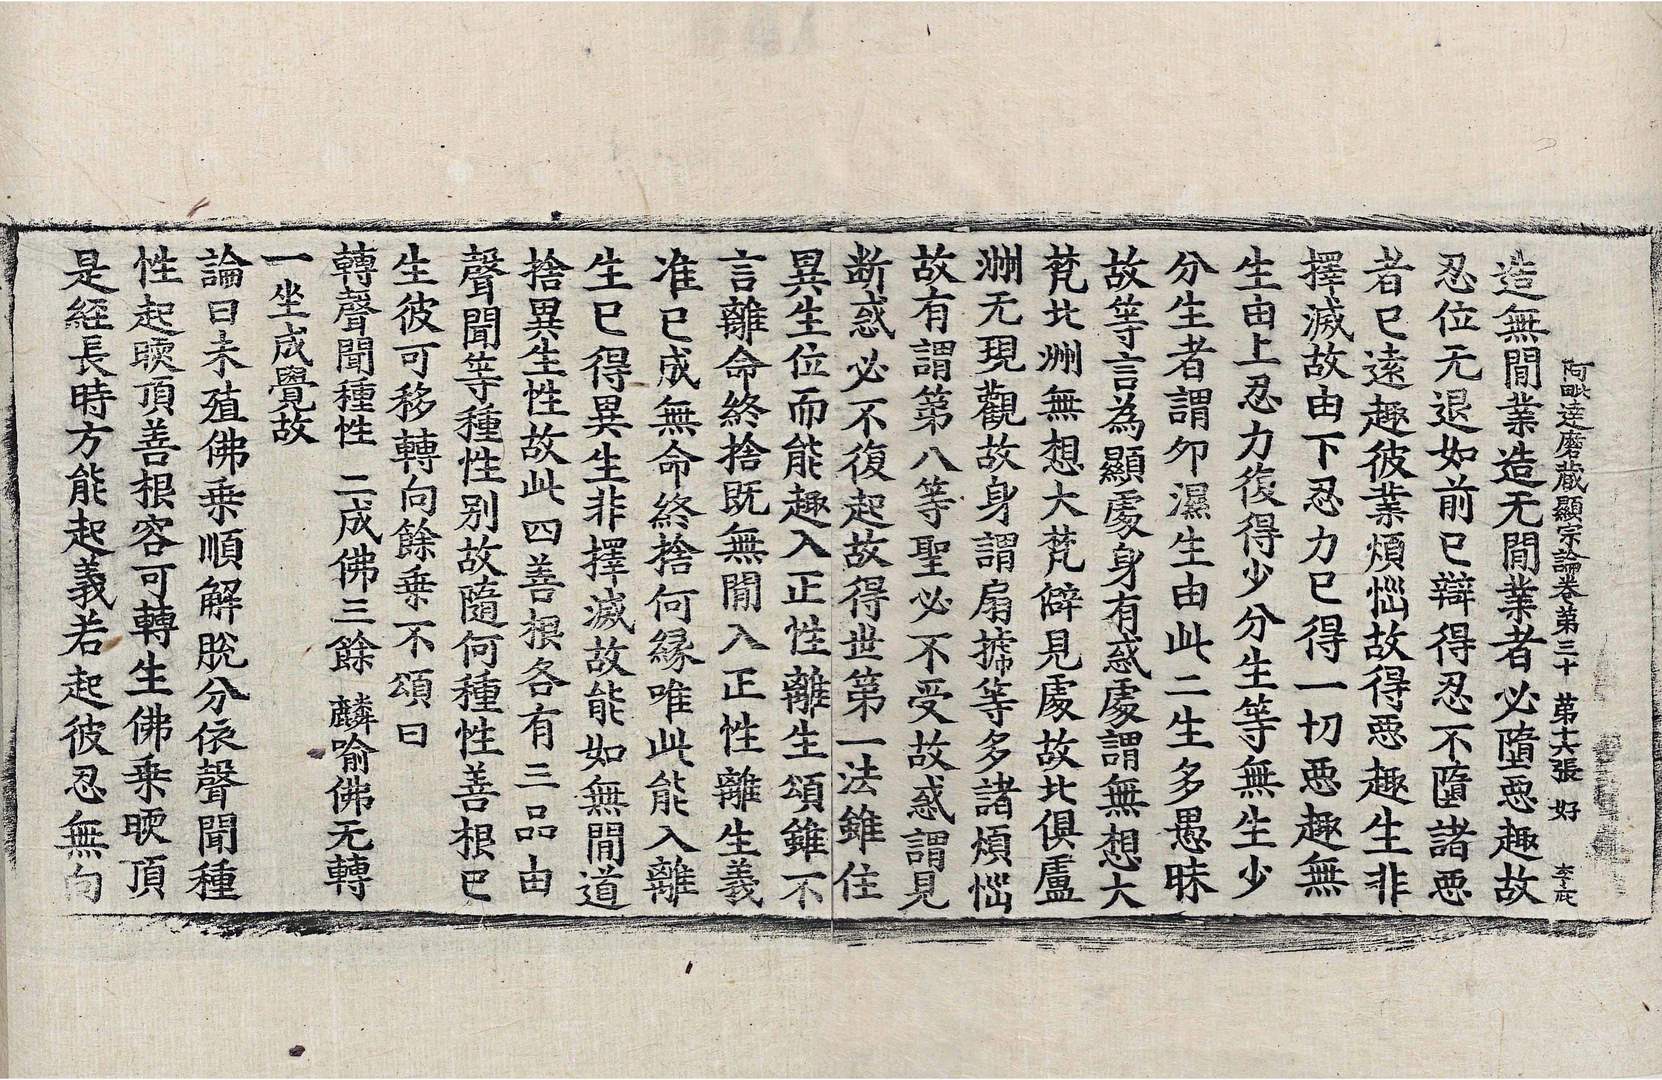 阿毗達磨藏顯宗論卷第三十 第十六張 好
造無閒業造无閒業者必墮惡趣故
忍位无退如前已辯得忍不墮諸惡
者已遠趣彼業煩惱故得惡趣生非
擇滅故由下忍力已得一切惡趣無
生由上忍力復得少分生等無生少
分生者謂卵濕生由此二生多愚昧
故等言為顯處身有惑處謂無想大
梵北洲無想大梵僻見處故北俱盧
洲无現觀故身謂扇搋等多諸煩惱
故有謂第八等聖必不受故惑謂見
断惑必不復起故得世第一法雖住
異生位而能趣入正性離生頌雖不
言離命終捨既無閒入正性離生義
准已成無命終捨何緣唯此能入離
生已得異生非擇滅故能如無閒道
捨異生性故此四善根各有三品由
聲聞等種性別故隨何種性善根已
生彼可移轉向餘乘不頌曰
轉聲聞種性 二成佛三餘 麟喻佛无轉
一坐成覺故
論曰未殖佛乘順解脫分依聲聞種
性起暖頂善根容可轉生佛乘暖頂
是經長時方能起義若起彼忍無向